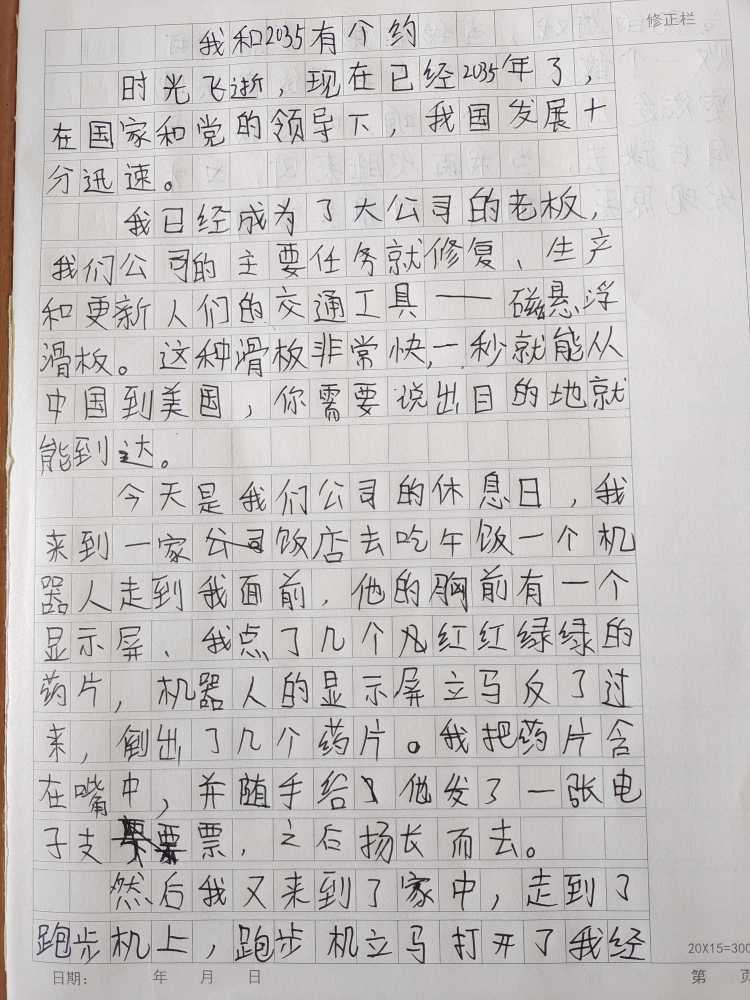 修正栏
我和2035有个约
时光飞逝，现在已经2035年了，
在国家和党的领导下，我国发展十
分迅速。
我已经成为了大公司的老板，
我们公司的主要任务就修复、生产
和更新人们的交通工具——磁悬浮
滑板。这种滑板非常快，一秒就能从
中国到美国，你需要说出目的地就
能到达。
今天是我们公司的休息日，我
来到一家饭店去吃午饭一个机
器人走到我面前，他的胸前有一个
显示屏、我点了几个凡红红绿绿的
药片，机器人的显示屏立马反了过
来，倒出了几个药片。我把药片含
在嘴中，并随手给他发了一张电
子支票，之后扬长而去。
然后我又来到了家中，走到了
跑步机上，跑步机立马打开了我经
20X15=300
日期： 年 月 日 第 页